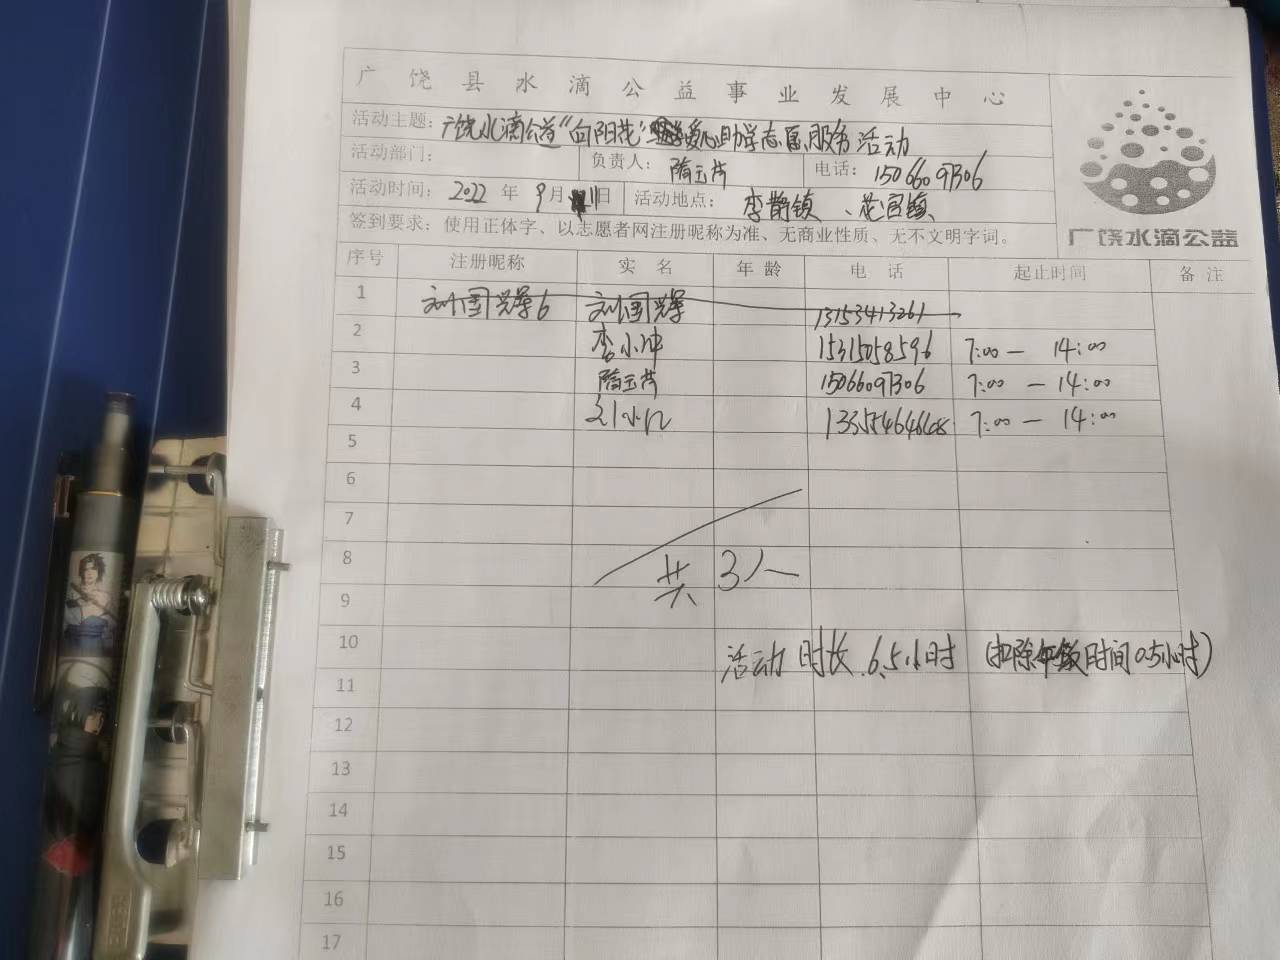 广饶县水滴公益事业发展中心
活动主题：广饶水滴公益“向阳花”爱心助学志愿服务活动
活动部门： 负责人：隋玉芳 电话：15066097306
活动时间：2022年9月11日 活动地点：李鹊镇、花官镇
签到要求：使用正体字、以志愿者网注册昵称为准、无商业性质、无不文明字词。
广饶水滴公益
序号 注册昵称 实名 年龄 电话 起止时间 备注
1 刘国兴 6 刘国 13153413261
2 李小冲 15315058596 7:00— 14:00
3 隋玉芳 15066097306 7:00 — 14:00
4 刘小 7:00 — 14:00
5
6
7
8 共3人
9
10 活动时长 6.5小时（扣除午饭时间0.5小时）
11
12
13
14
15
16
17